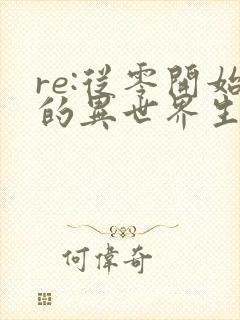 re:從零開始
的異世界生
何偉奇